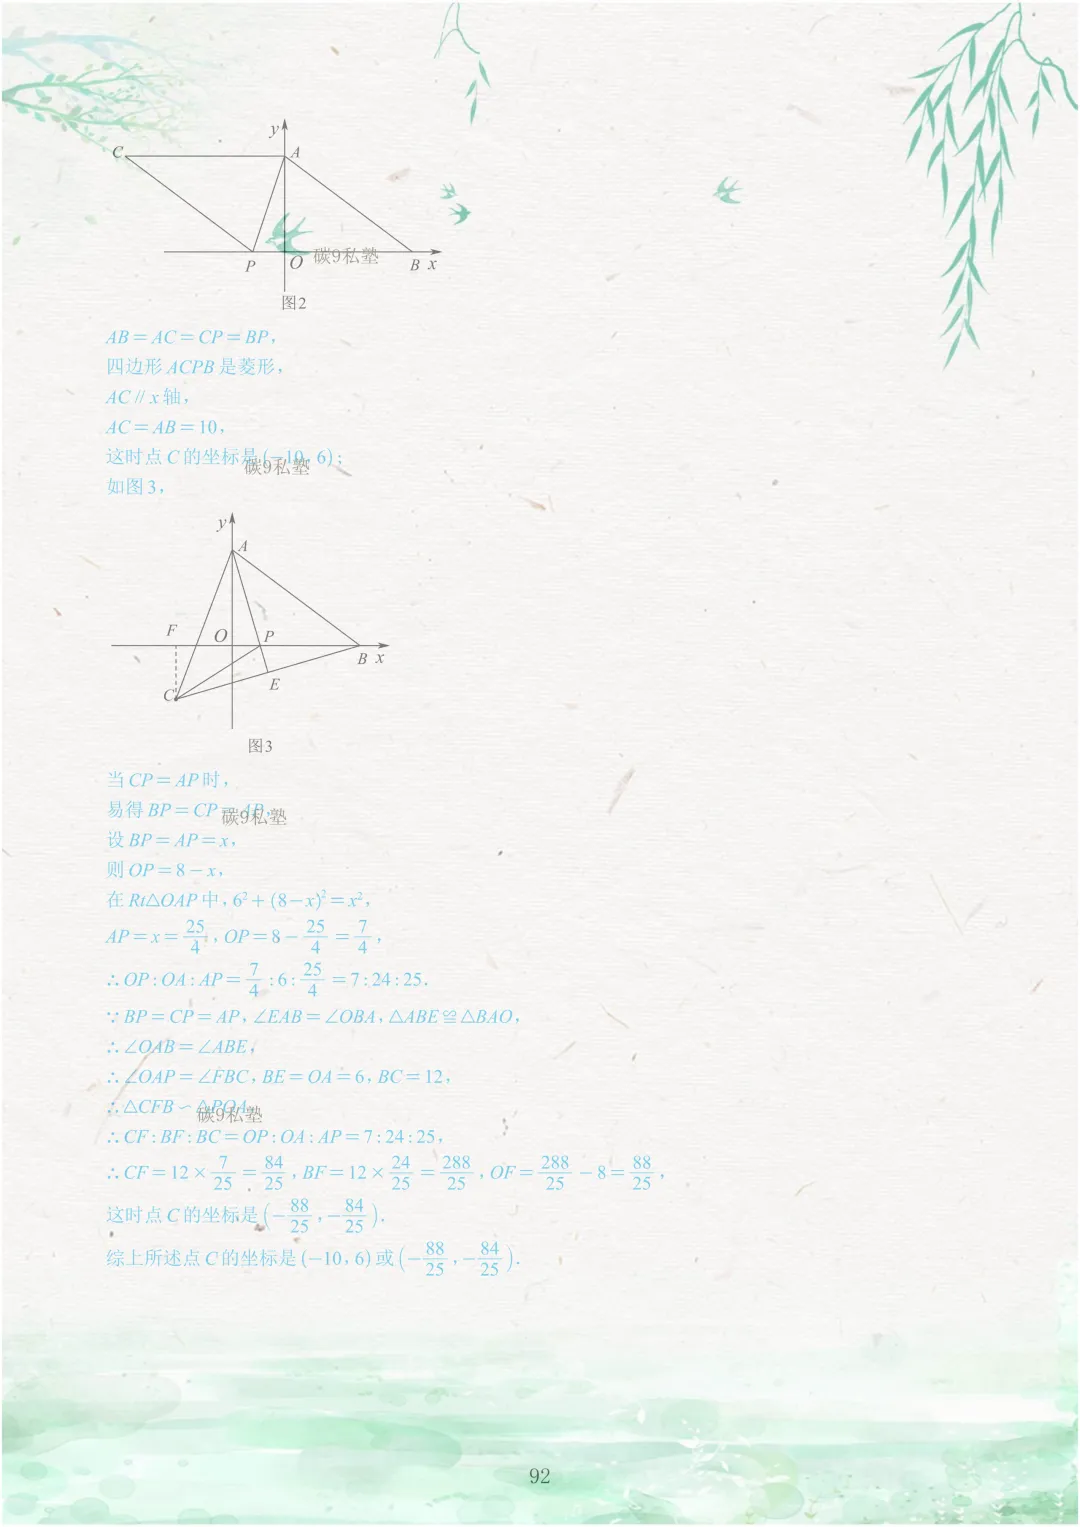 y
C
A
P
O
碳9私塾
B
x
图2
AB=AC=CP=BP,
四边形ACPB是菱形,
AC∥x轴,
AC=AB=10,
这时点C的坐标是(-10,6);
碳9私塾
如图3,
y
A
F
O
P
B
x
C
E
图3
当CP=AP时,
易得BP=CP=AP,
碳9私塾
设BP=AP=x,
则OP=8-x,
在Rt△OAP中,6²+(8-x)²=x²,
AP=x=25/4,OP=8-25/4=7/4,
∴OP:OA:AP=7/4:6:25/4=7:24:25.
∵BP=CP=AP,∠EAB=∠OBA,△ABE≌△BAO,
∴∠OAB=∠ABE,
∴∠OAP=∠FBC,BE=OA=6,BC=12,
∴△CFB∽△POA,
碳9私塾
∴CF:BF:BC=OP:OA:AP=7:24:25,
∴CF=12×7/25=84/25,BF=12×24/25=288/25,OF=288/25-8=88/25,
这时点C的坐标是(-88/25,-84/25).
综上所述点C的坐标是(-10,6)或(-88/25,-84/25).
92